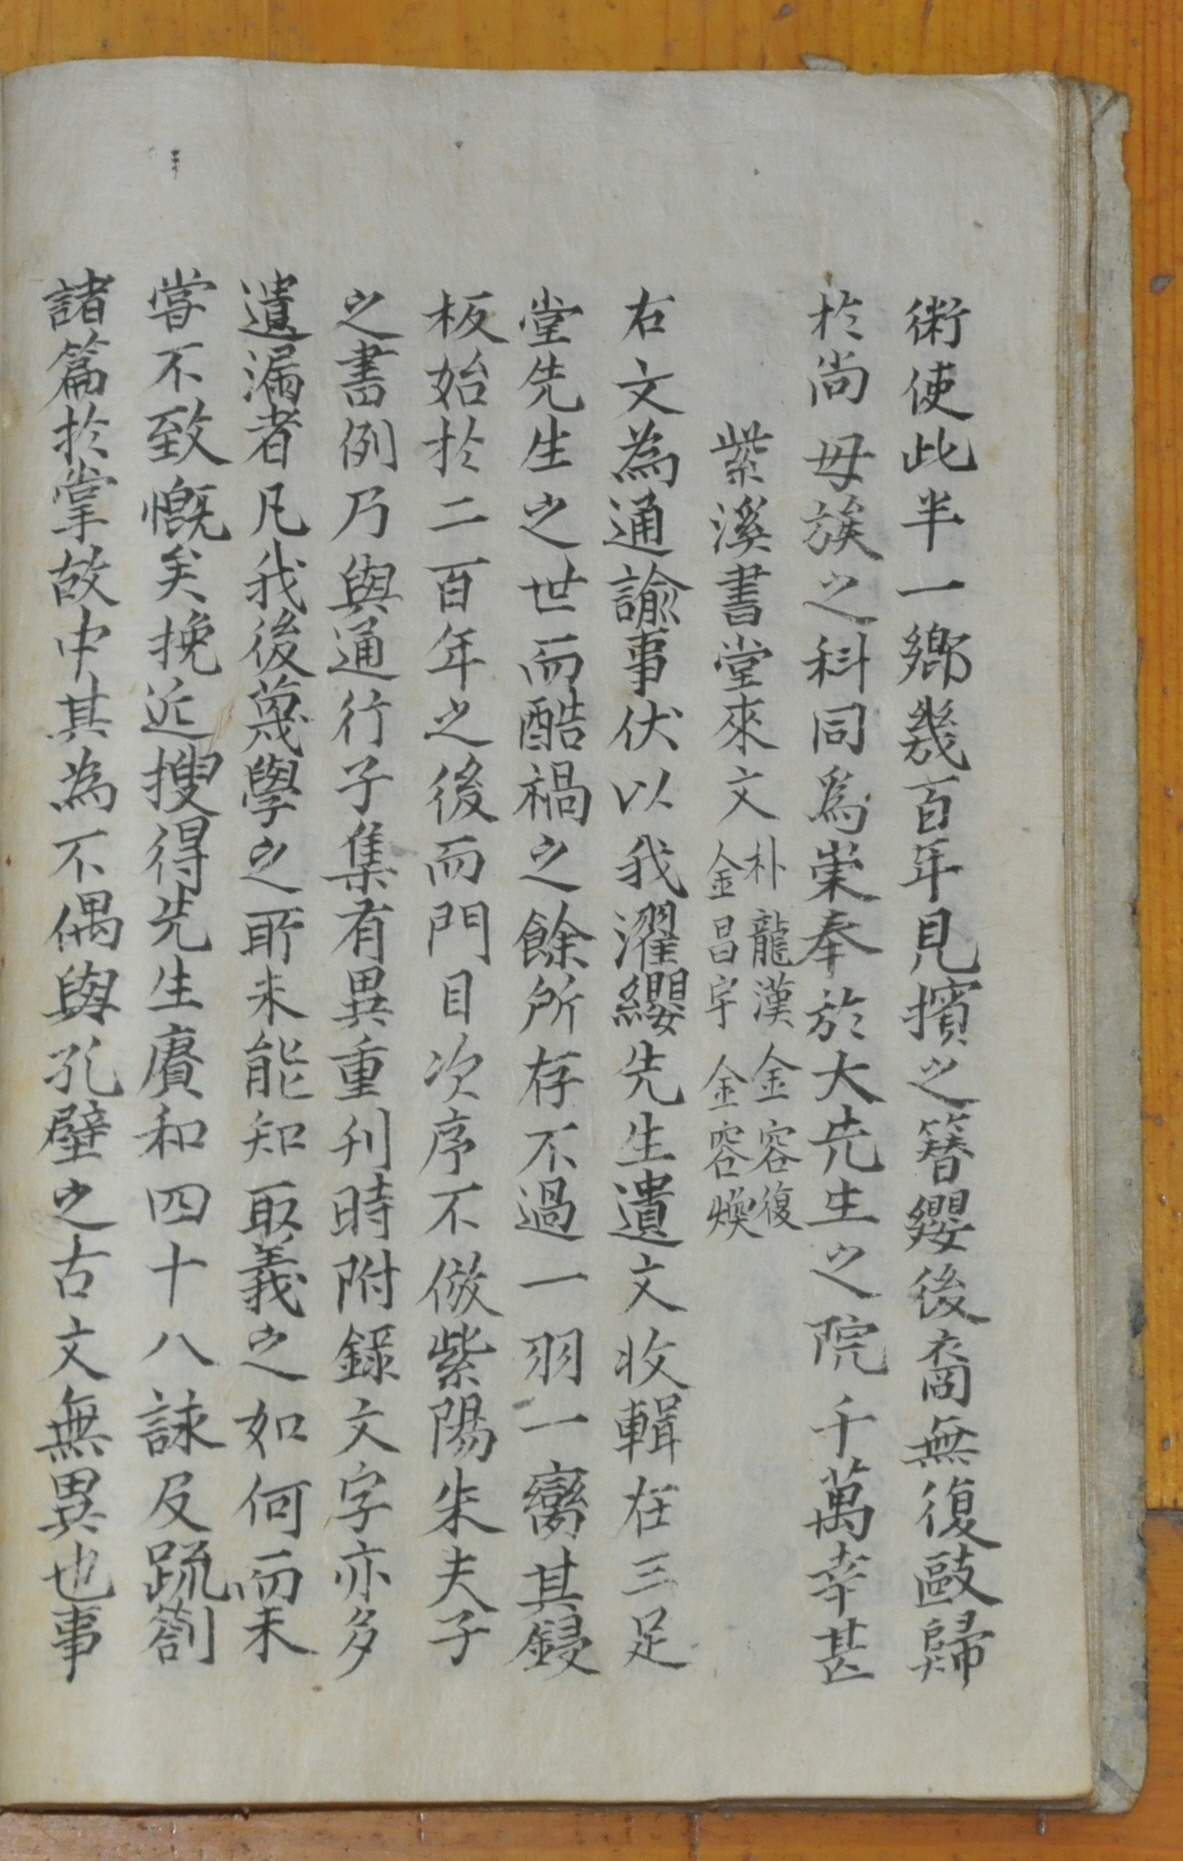 術使此半一鄉幾百年見擯之簪纓後裔無復敺歸
於尙母族之科同爲崇奉於大先生之院千萬幸甚
紫溪書堂來文 朴龍漢 金容復
金昌宇 金容煥
右文為通諭事伏以我濯纓先生遺文收輯在三足
堂先生之世而酷禍之餘所存不過一羽一臠其鋟
板始於二百年之後而門目次序不倣紫陽朱夫子
之書例乃與通行子集有異重刊時附錄文字亦多
遺漏者凡我後蔑學之所未能知取義之如何而未
嘗不致慨矣挽近搜得先生賡和四十八詠及疏劄
諸篇於掌故中其為不偶與孔壁之古文無異也事